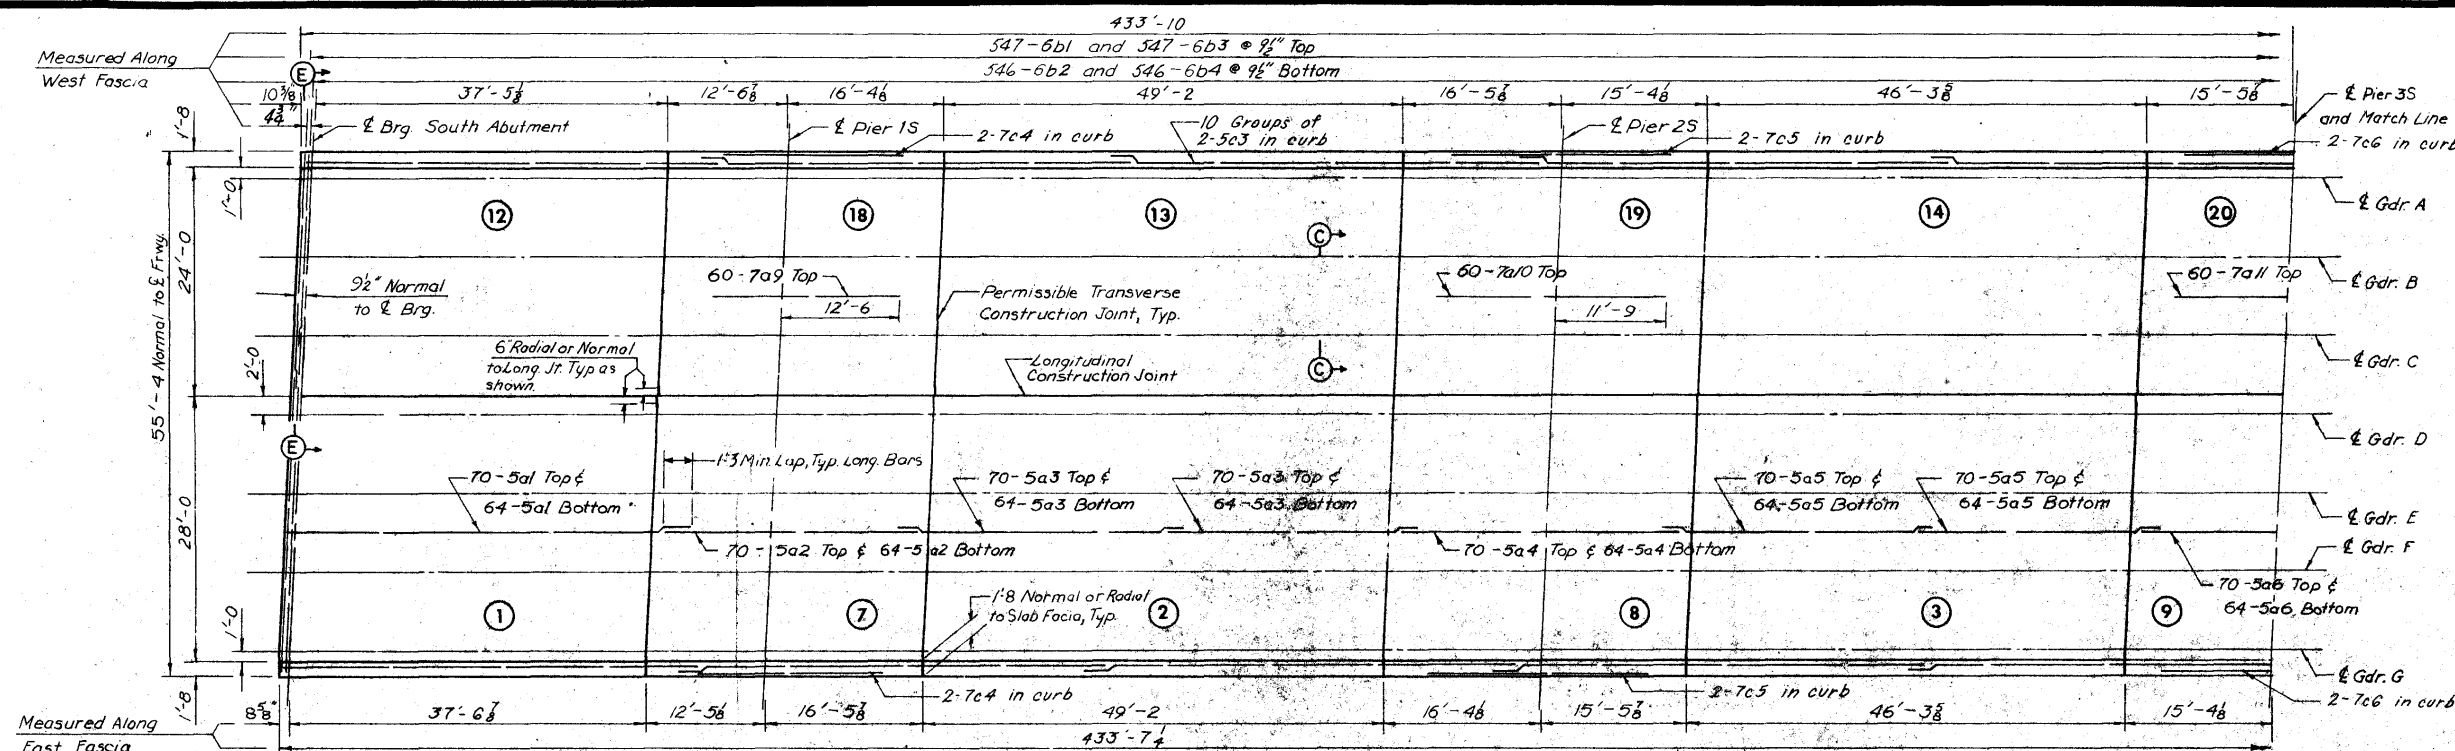 433'-10
547-6b1 and 547-6b3 @ 9½" Top
546-6b2 and 546-6b4 @ 9½" Bottom
Measured Along
West Fascia
E
10⅜"
4¾"
37'-5⅛
12'-6⅞
16'-4⅛
49'-2
16'-5⅞
15'-4⅛
46'-3⅝
15'-5⅞
1'-8
℄ Brg. South Abutment
℄ Pier 1S
2-7c4 in curb
10 Groups of
2-5c3 in curb
℄ Pier 2S
2-7c5 in curb
℄ Pier 3S
and Match Line
2-7c6 in curb
1'-0
12
18
13
C
19
14
20
℄ Gdr. A
55'-4 Normal to ℄ Frwy.
24'-0
9½" Normal
to ℄ Brg.
60-7a9 Top
12'-6
Permissible Transverse
Construction Joint, Typ.
60-7a10 Top
11'-9
60-7a11 Top
℄ Gdr. B
6" Radial or Normal
to Long. Jt. Typ as
shown.
2'-0
Longitudinal
Construction Joint
C
℄ Gdr. C
E
℄ Gdr. D
1'-3 Min. Lap, Typ. Long. Bars
28'-0
70-5a1 Top ¢
64-5a1 Bottom
70-5a3 Top ¢
64-5a3 Bottom
70-5a3 Top ¢
64-5a3 Bottom
70-5a5 Top ¢
64-5a5 Bottom
70-5a5 Top ¢
64-5a5 Bottom
℄ Gdr. E
70-5a2 Top ¢ 64-5a2 Bottom
70-5a4 Top ¢ 64-5a4 Bottom
℄ Gdr. F
70-5a6 Top ¢
64-5a6 Bottom
1'-0
1
7
1'-8 Normal or Radial
to Slab Facia, Typ.
2
8
3
9
℄ Gdr. G
2-7c4 in curb
2-7c5 in curb
2-7c6 in curb
1'-8
8⅝"
37'-6⅞
12'-5⅛
16'-5⅞
49'-2
16'-4⅛
15'-5⅞
46'-3⅝
15'-4⅛
Measured Along
East Fascia
433'-7¼